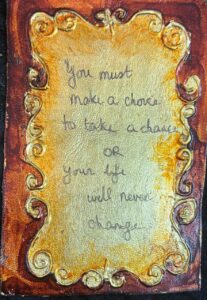 You must
make a choice
to take a chance
OR
your life
will never
change